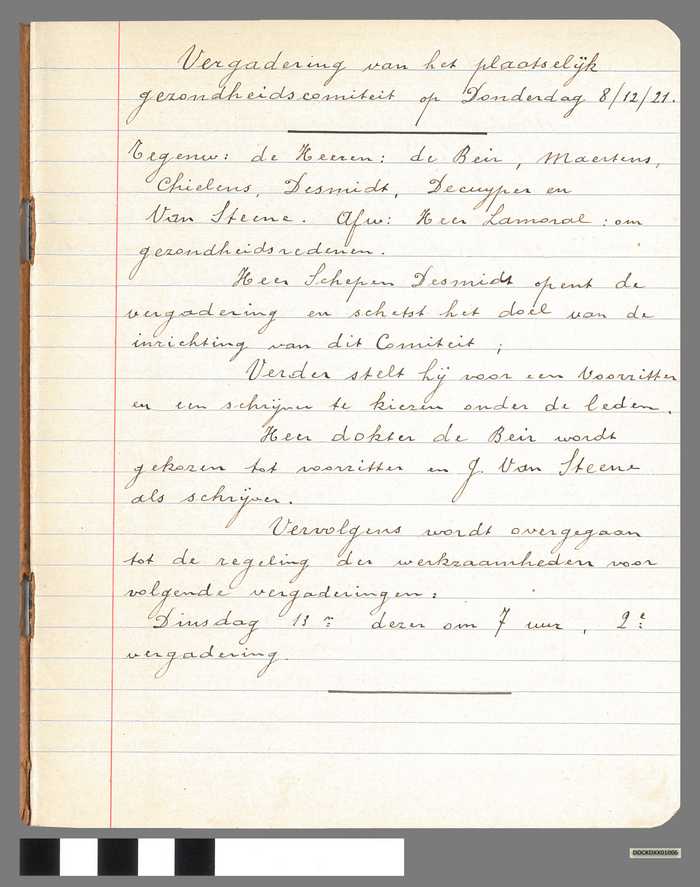 Vergadering van het plaatselijk
gezondheidscomiteit op Donderdag 8/12/21.
Tegenw: de Heeren: de Beir, Maertens,
Chielens, Desmidt, Decuyper en
Van Steene. Afw: Heer Lamoral: om
gezondheidsredenen.
Heer Schepen Desmidt opent de
vergadering en schetst het doel van de
inrichting van dit Comiteit;
Verder stelt hij voor een Voorzitter
en een schrijver te kiezen onder de leden.
Heer dokter de Beir wordt
gekozen tot voorzitter en J. Van Steene
als schrijver.
Vervolgens wordt overgegaan
tot de regeling der werkzaamheden voor
volgende vergaderingen:
Dinsdag 13n dezer om 7 uur, 2e
vergadering.
DOCKDKX01006